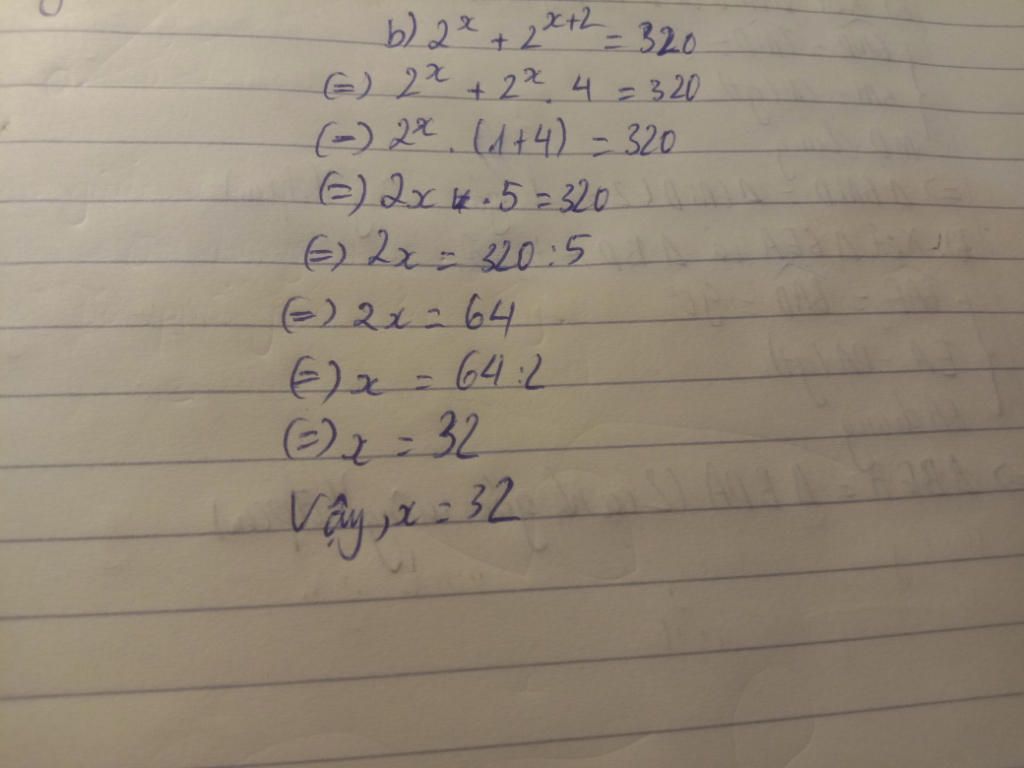 b) 2^x + 2^{x+2} = 320
(=) 2^x + 2^x . 4 = 320
(=) 2^x . (1+4) = 320
(=) 2x . 5 = 320
(=) 2x = 320 : 5
(=) 2x = 64
(=) x = 64 : 2
(=) x = 32
Vậy, x = 32